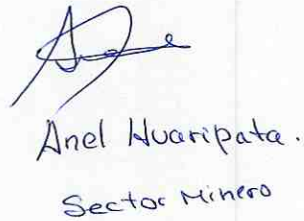 Anel Huaripata.
Sector Minero